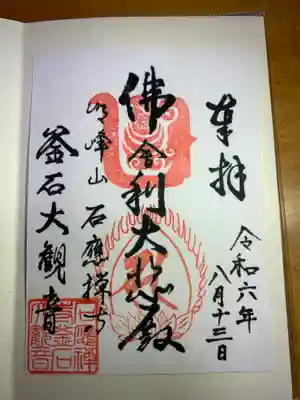 奉拝
令和六年
八月十三日
佛舎利大悲殿
明峰山 石應禅寺
釜石大観音